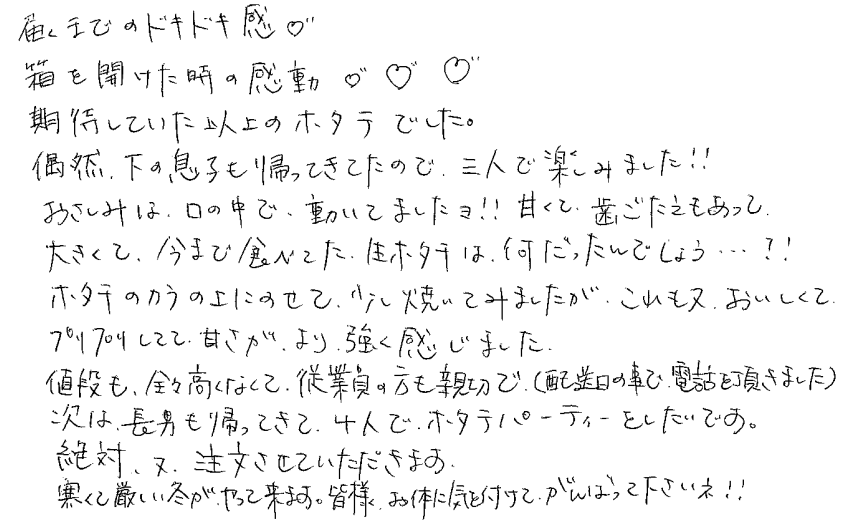 届くまでのドキドキ感♡゛
箱を開けた時の感動♡゛♡゛♡゛
期待していた以上のホタテでした。
偶然、下の息子も帰ってきてたので、三人で楽しみました!!
おさしみは、口の中で、動いてましたヨ!!甘くて、歯ごたえもあって、
大きくて、今まで食べてた、生ホタテは、何だったんでしょう…?!
ホタテのカラの上にのせて、少し焼いてみましたが、これも又、おいしくて、
プリプリしてて、甘さが、より、強く感じました。
値段も、全々高くなくて、従業員の方も親切で、(配送日の事で、電話を頂きました)
次は、長男も帰ってきて、4人で、ホタテパーティーをしたいです。
絶対、又、注文させていただきます。
寒くて厳しい冬が、やって来ます。皆様、お体に気を付けて、がんばって下さいネ!!